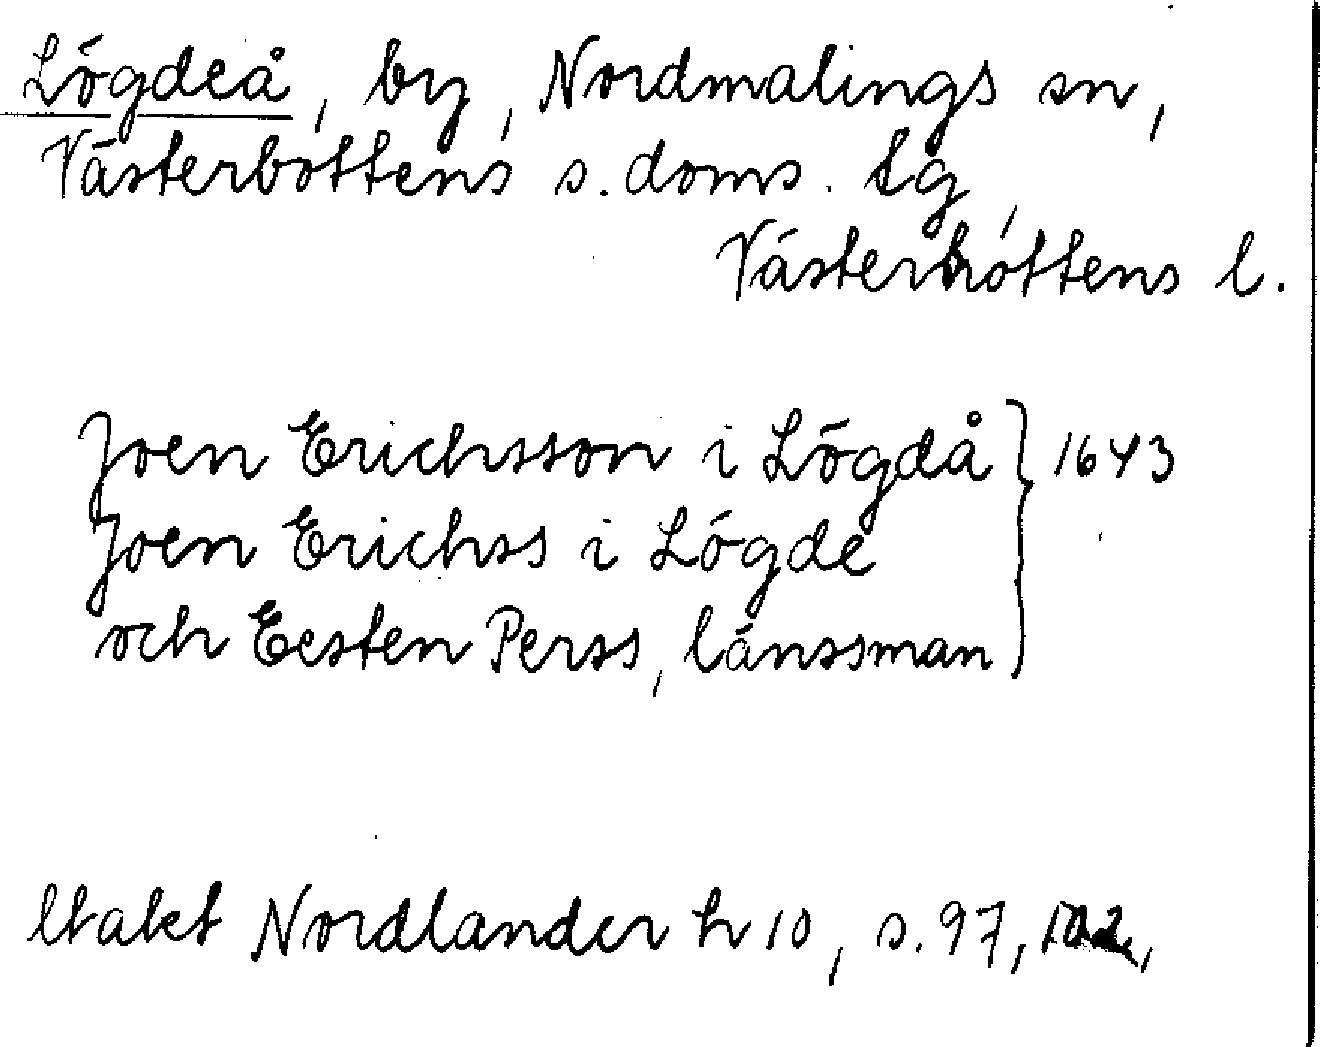 Lögdeå, by, Nordmalings sn,
Västerbottens s. doms. tg,
Västerbottens l.
Joen Erichsson i Lögdå } 1643
Joen Erichss i Lögde
och Eesten Perss, länssman
Nordlander h 10, s. 97, 102,